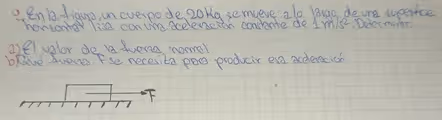 En la figura, un cuerpo de 20 Kg se mueve a lo largo de una superficie
horizontal lisa con una aceleración constante de 1 m/s². Determinar
a) El valor de la fuerza normal
b) Que fuerza F se necesita para producir esa aceleración
F